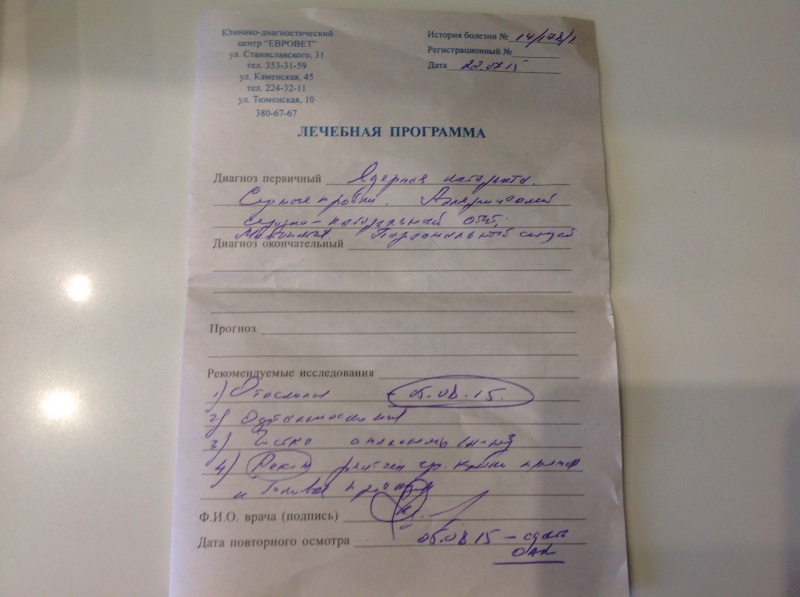 Клинико-диагностический
центр "ЕВРОВЕТ"
ул. Станиславского, 31
тел. 353-31-59
ул. Каменская, 45
тел. 224-32-11
ул. Тюменская, 10
380-67-67
История болезни № 14/178/1
Регистрационный №
Дата 22.07.15
ЛЕЧЕБНАЯ ПРОГРАММА
Диагноз первичный Ядерная катаракта.
Серные пробки. Аллергический
серозно-катаральный отит.
Диагноз окончательный
Прогноз
Рекомендуемые исследования
1) Отоскопия 05.08.15.
2) Офтальмоскопия
3)
4)
и головы
Ф.И.О. врача (подпись)
Дата повторного осмотра 05.08.15 - сдать
ОАК